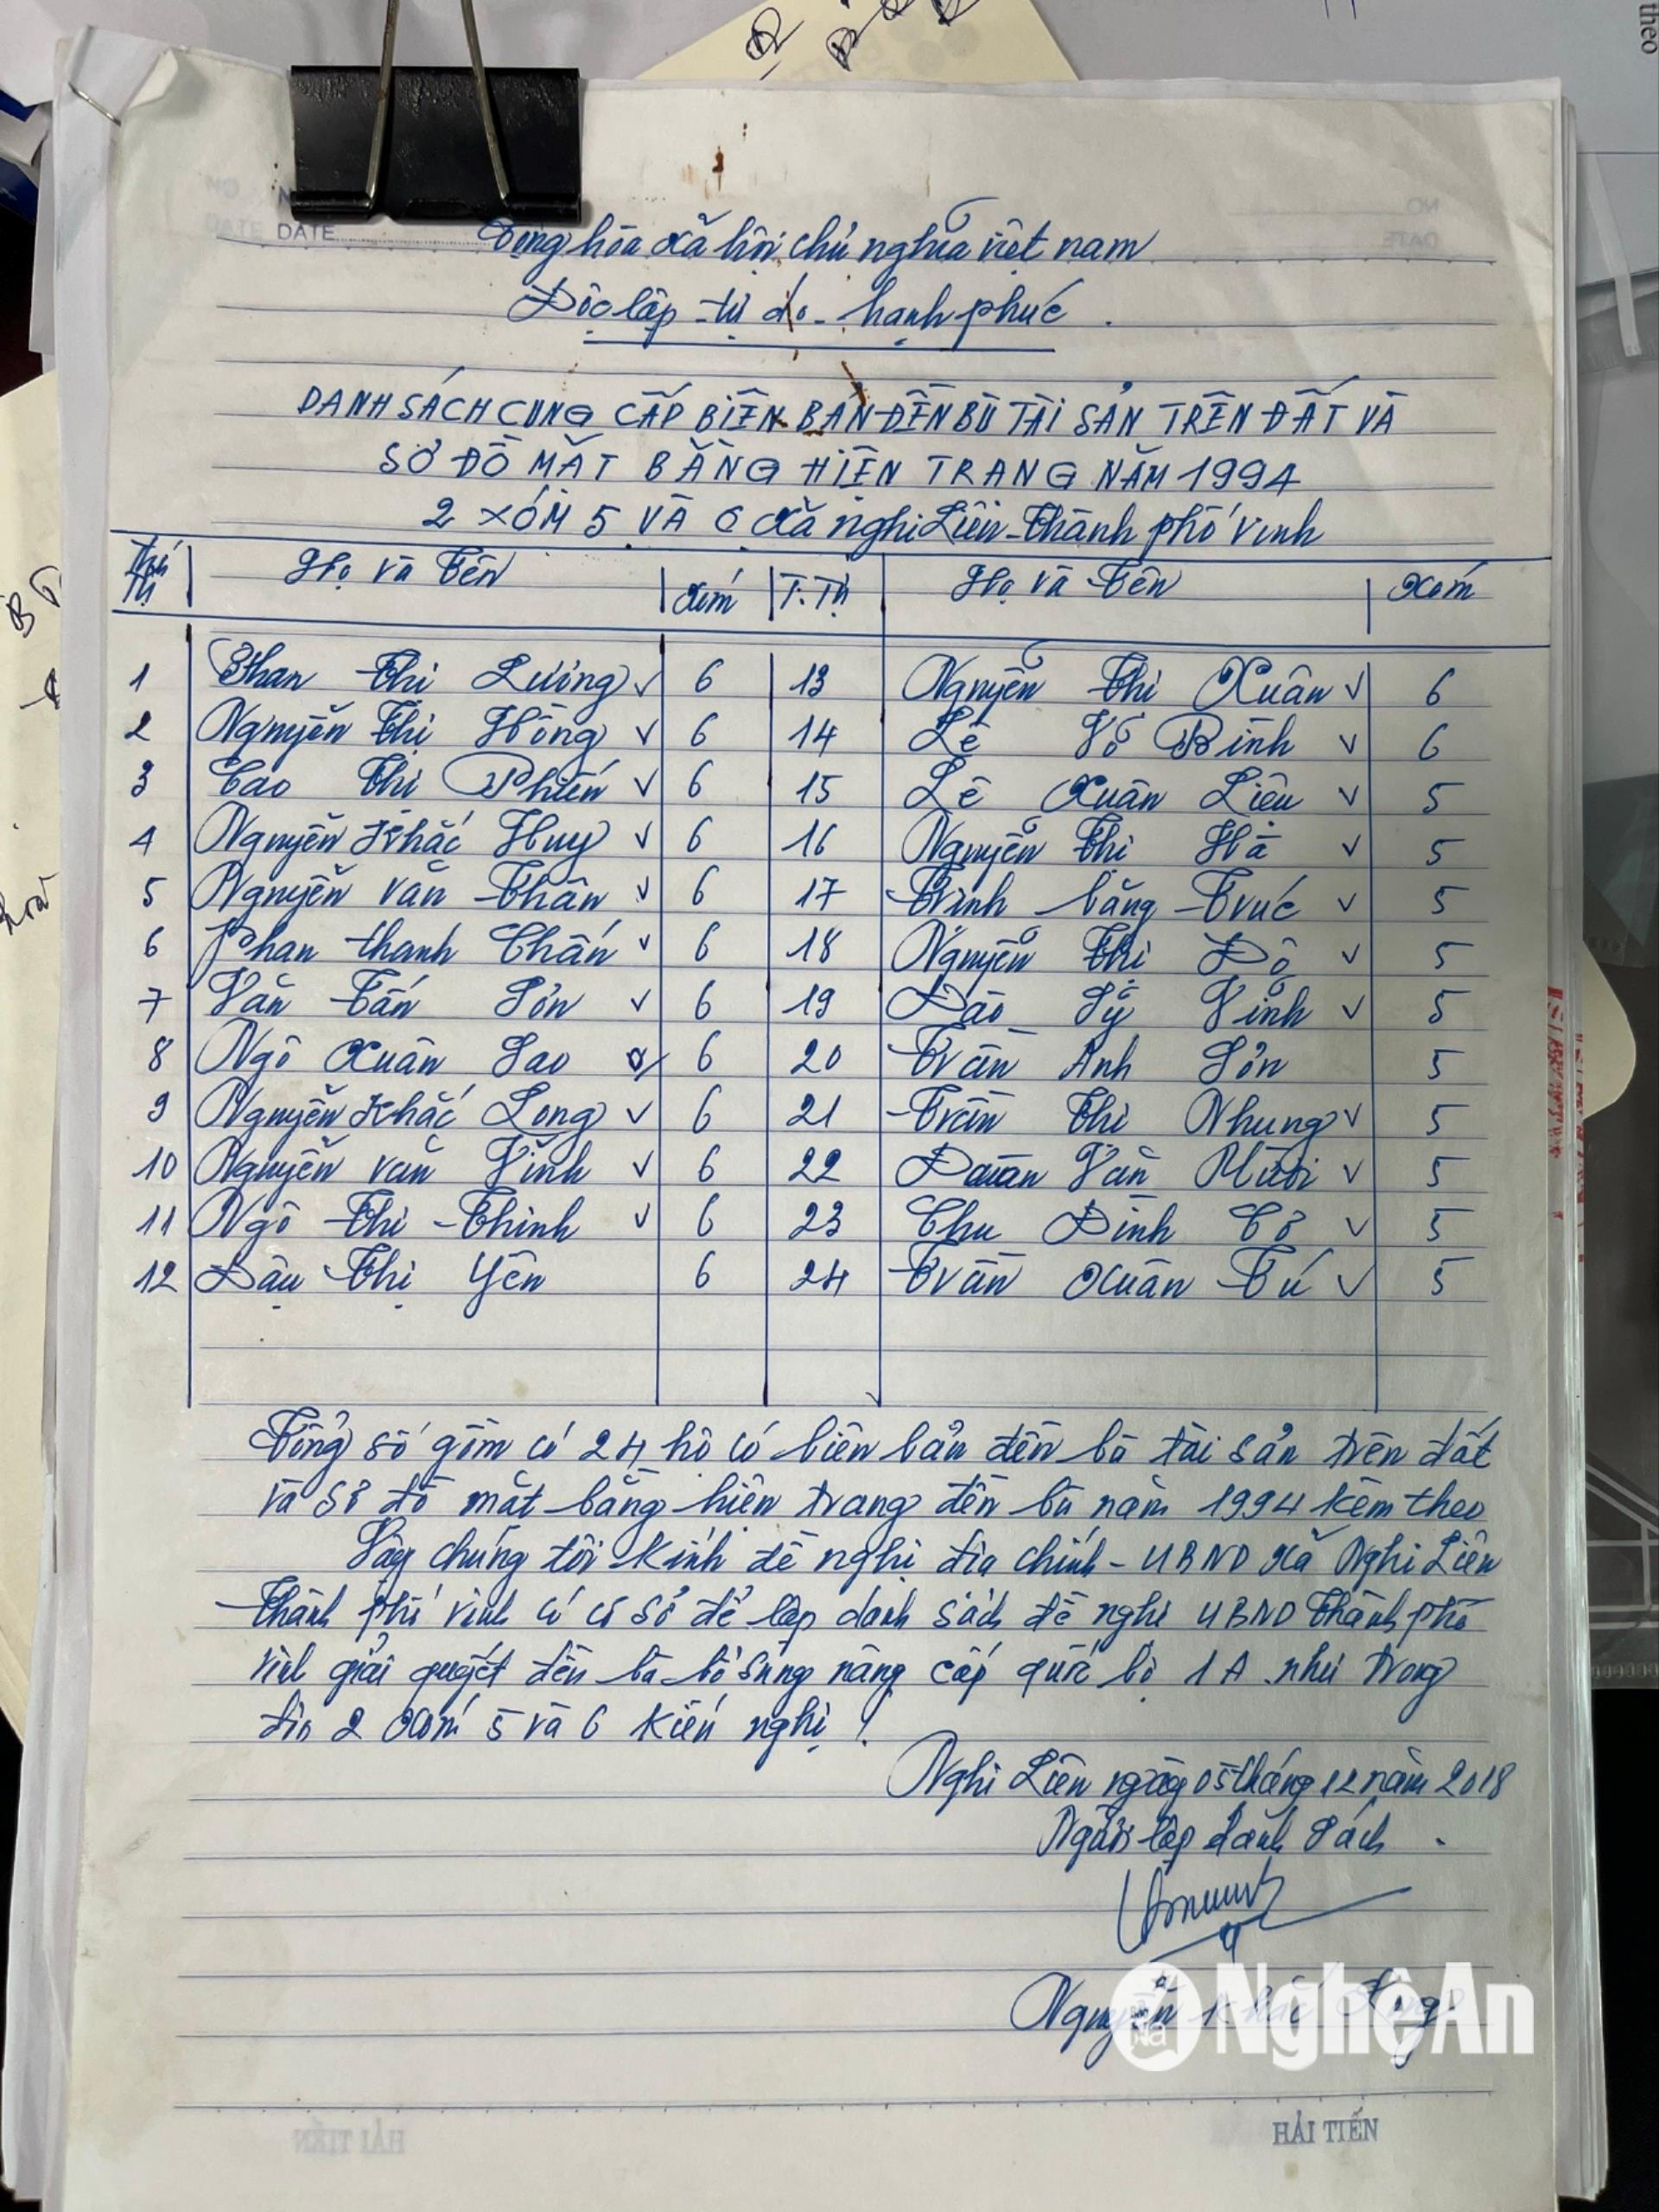 theo
DATE
Cộng hòa xã hội chủ nghĩa việt nam
Độc lập - tự do - hạnh phúc.
DANH SÁCH CUNG CẤP BIÊN BẢN ĐỀN BÙ TÀI SẢN TRÊN ĐẤT VÀ
SƠ ĐỒ MẶT BẰNG HIỆN TRẠNG NĂM 1994
2 XÓM 5 VÀ 6 xã nghi Liên - Thành phố Vinh
Thứ tự Họ và Tên Xóm T.Tự Họ và Tên Xóm
1 Phan Thị Lương ✓ 6 13 Nguyễn Thị Xuân ✓ 6
2 Nguyễn Thị Hồng ✓ 6 14 Lê Võ Bình ✓ 6
3 Cao Thị Phiến ✓ 6 15 Lê Xuân Liệu ✓ 5
4 Nguyễn Khắc Huy ✓ 6 16 Nguyễn Thị Hà ✓ 5
5 Nguyễn văn Thân ✓ 6 17 Trình bằng Trúc ✓ 5
6 Phan thanh Chấn ✓ 6 18 Nguyễn Thị Độ ✓ 5
7 Văn Tấn Sơn ✓ 6 19 Đào Sỹ Vinh ✓ 5
8 Ngô Xuân Sao 6 20 Trần Anh Sơn 5
9 Nguyễn Khắc Long ✓ 6 21 Trần Thị Nhung ✓ 5
10 Nguyễn văn Vinh ✓ 6 22 Văn Mười ✓ 5
11 Ngô Thị Thinh ✓ 6 23 Chu Đình Cơ ✓ 5
12 Đậu Thị Yên 6 24 Trần Xuân Tú ✓ 5
Tổng số gồm có 24 hộ có biên bản đền bù tài sản trên đất
và sơ đồ mặt bằng hiện trạng đền bù năm 1994 kèm theo
Vậy chúng tôi kính đề nghị địa chính - UBND xã Nghi Liên
Thành phố vinh có cơ sở để lập danh sách đề nghị UBND Thành phố
vinh giải quyết đền bù bổ sung nâng cấp quốc lộ 1A như trong
đơn 2 xóm 5 và 6 kiến nghị!
Nghi Liên ngày 05 tháng 12 năm 2018
Người lập danh sách.
Nguyễn Khắc
NghệAn
HẢI TIẾN